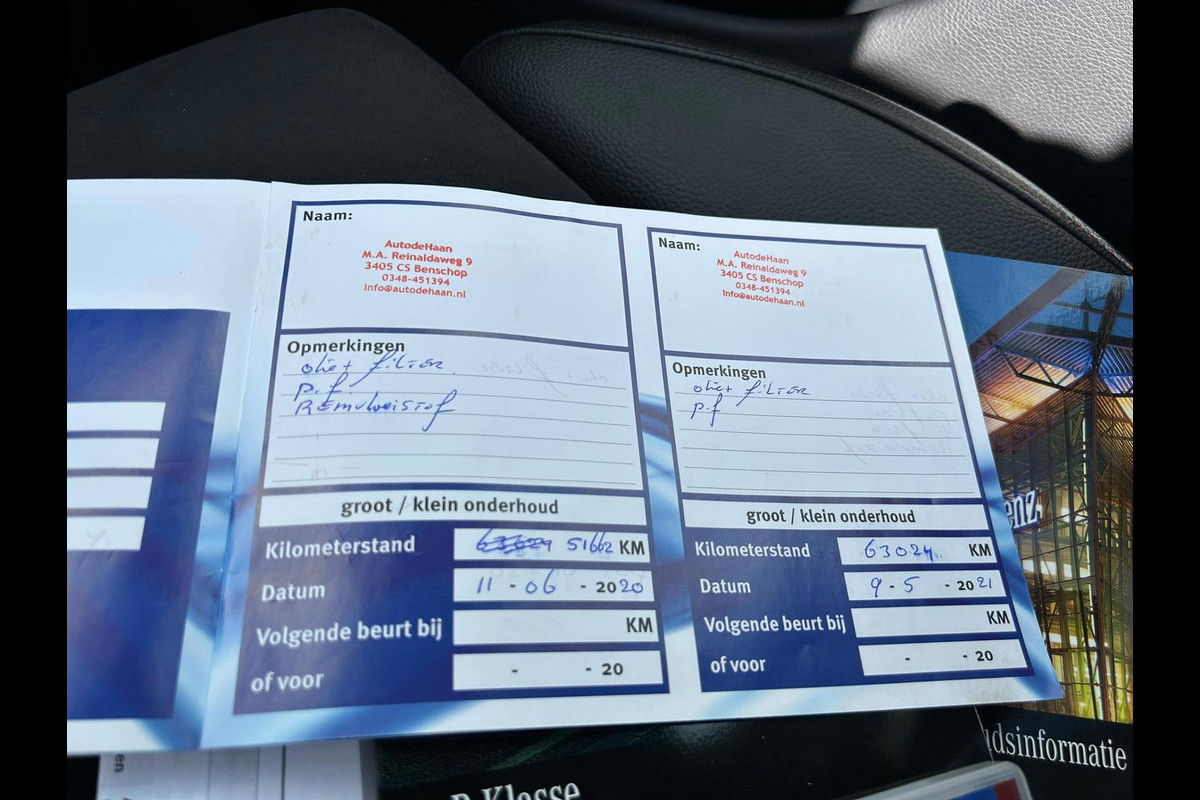 Naam:
AutodeHaan
M.A. Reinaldaweg 9
3405 CS Benschop
0348-451394
info@autodehaan.nl
Opmerkingen
olie+ filter
p.f
Remvloeistof
groot / klein onderhoud
Kilometerstand 51662 KM
Datum 11 - 06 - 2020
Volgende beurt bij KM
of voor - - 20
Naam:
AutodeHaan
M.A. Reinaldaweg 9
3405 CS Benschop
0348-451394
info@autodehaan.nl
Opmerkingen
olie+ filter
p.f
groot / klein onderhoud
Kilometerstand 63024 KM
Datum 9 - 5 - 2021
Volgende beurt bij KM
of voor - - 20
enz
udsinformatie
Klasse
en